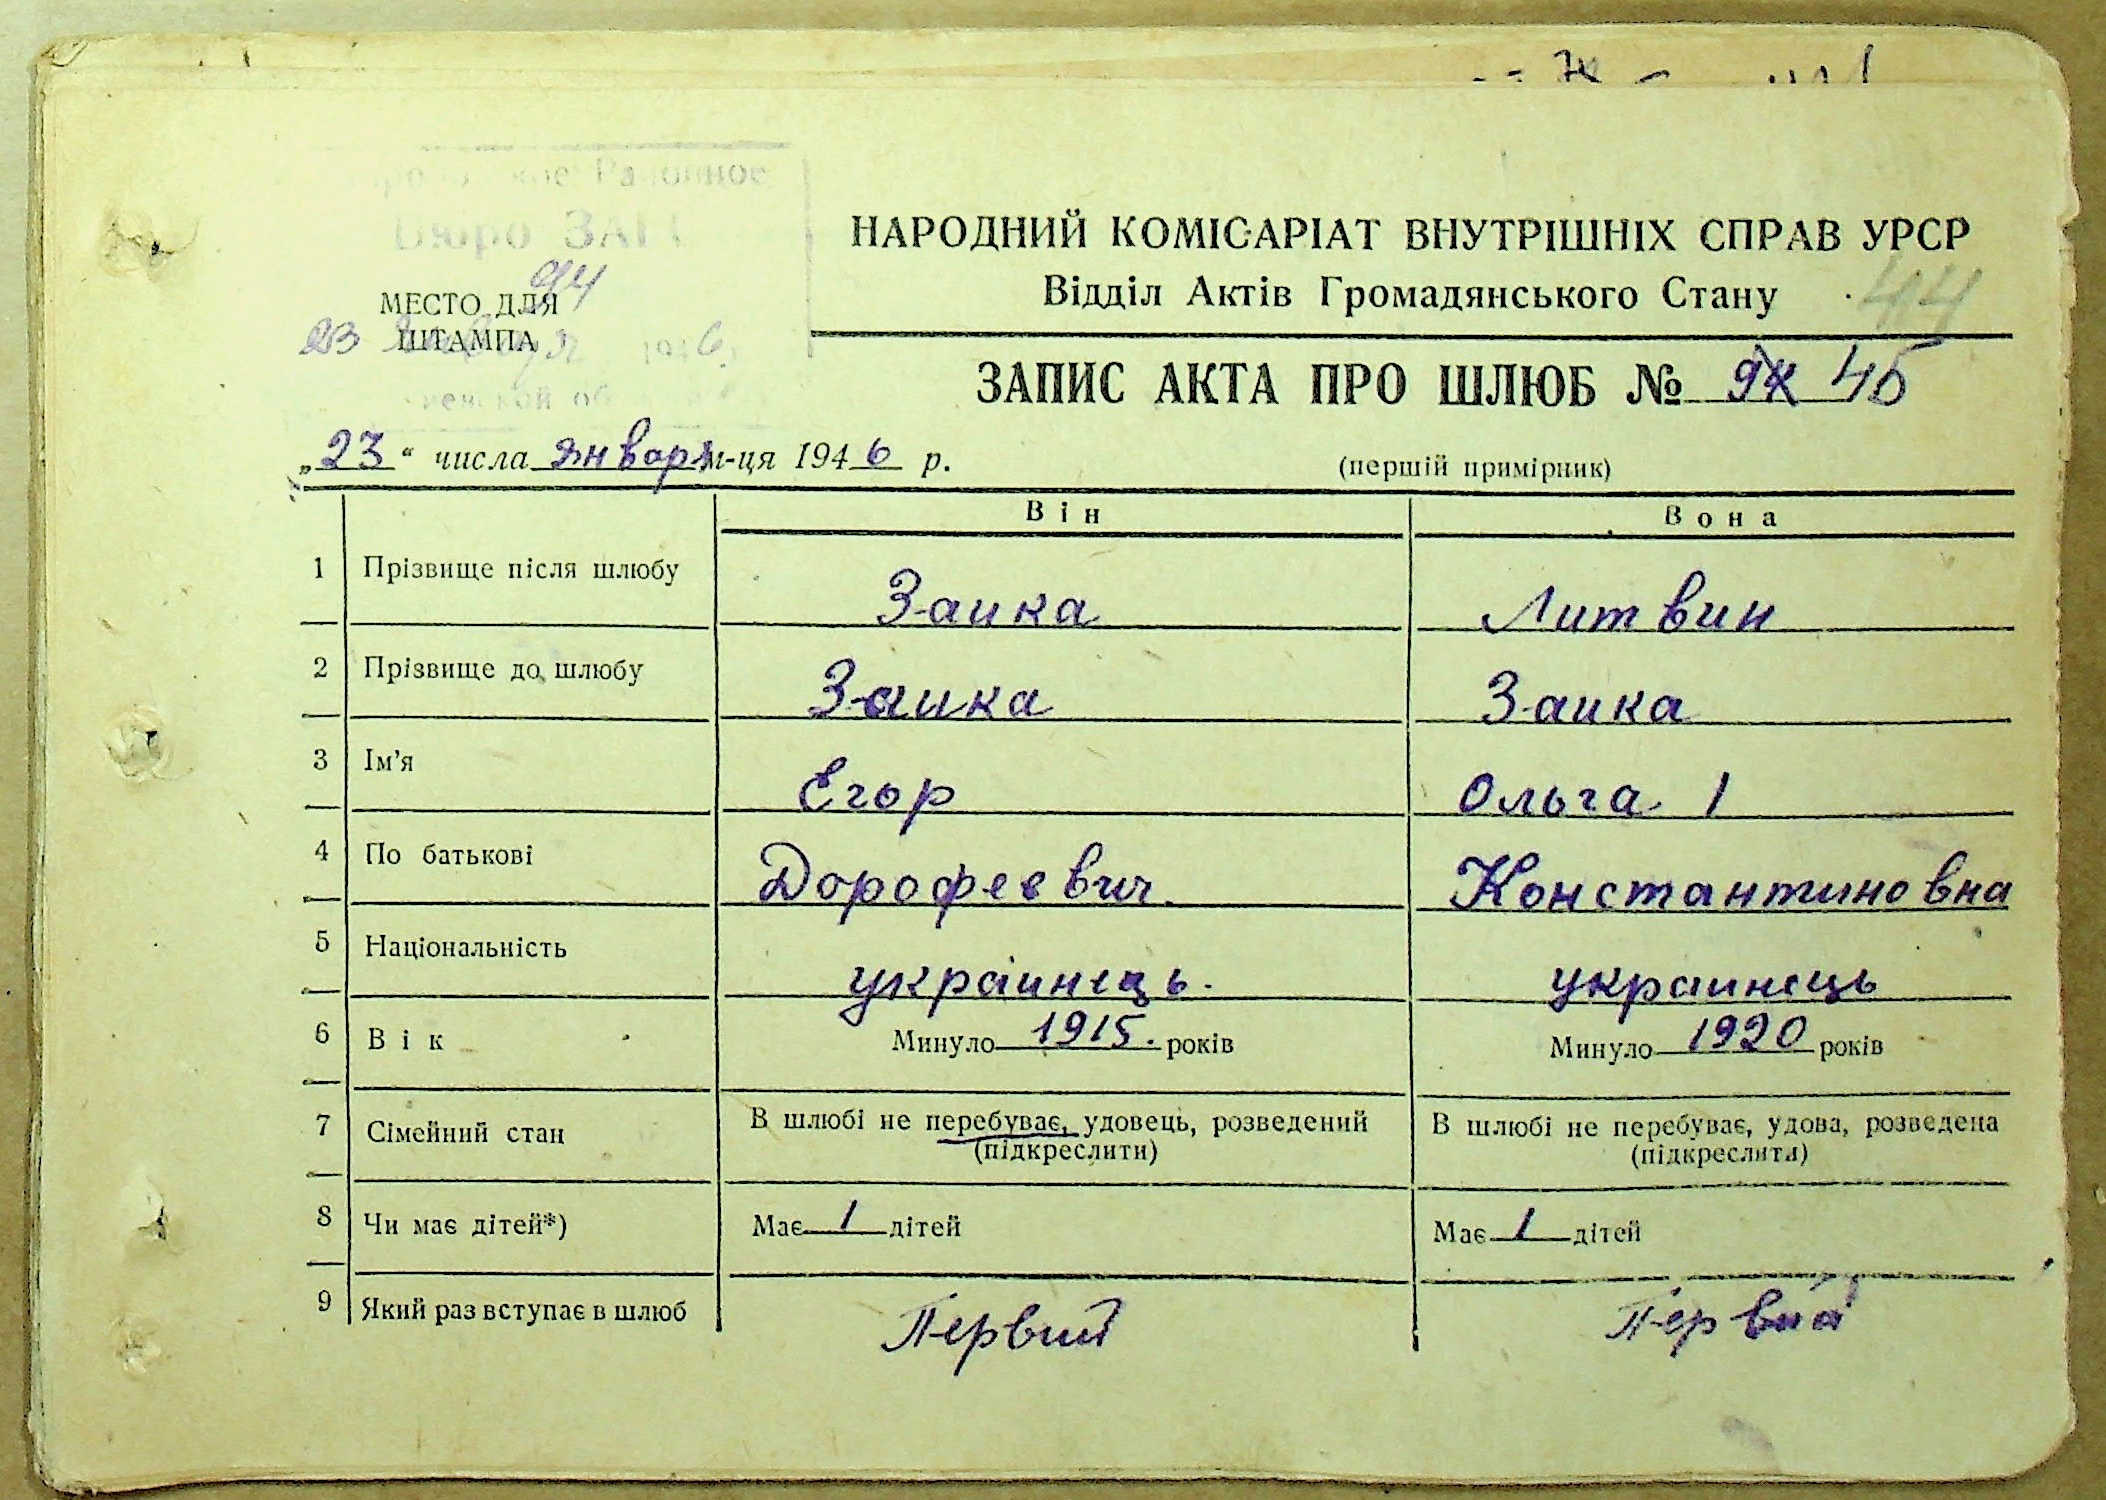 Бюро ЗАГС
94
МЕСТО ДЛЯ
ШТАМПА
23 января 1946
НАРОДНИЙ КОМІСАРІАТ ВНУТРІШНІХ СПРАВ УРСР
Відділ Актів Громадянського Стану
44
ЗАПИС АКТА ПРО ШЛЮБ № 94 45
„23“ числа января м-ця 1946 р.
(перший примірник)
Він Вона
1 Прізвище після шлюбу Заика Литвин
2 Прізвище до шлюбу Заика Заика
3 Ім’я Егор Ольга 1
4 По батькові Дорофеевич. Константиновна
5 Національність украинець. украинець
6 Вік Минуло 1915. років Минуло 1920 років
7 Сімейний стан В шлюбі не перебуває, удовець, розведений В шлюбі не перебуває, удова, розведена
(підкреслити) (підкреслити)
8 Чи має дітей*) Має 1 дітей Має 1 дітей
9 Який раз вступає в шлюб Первий Первий